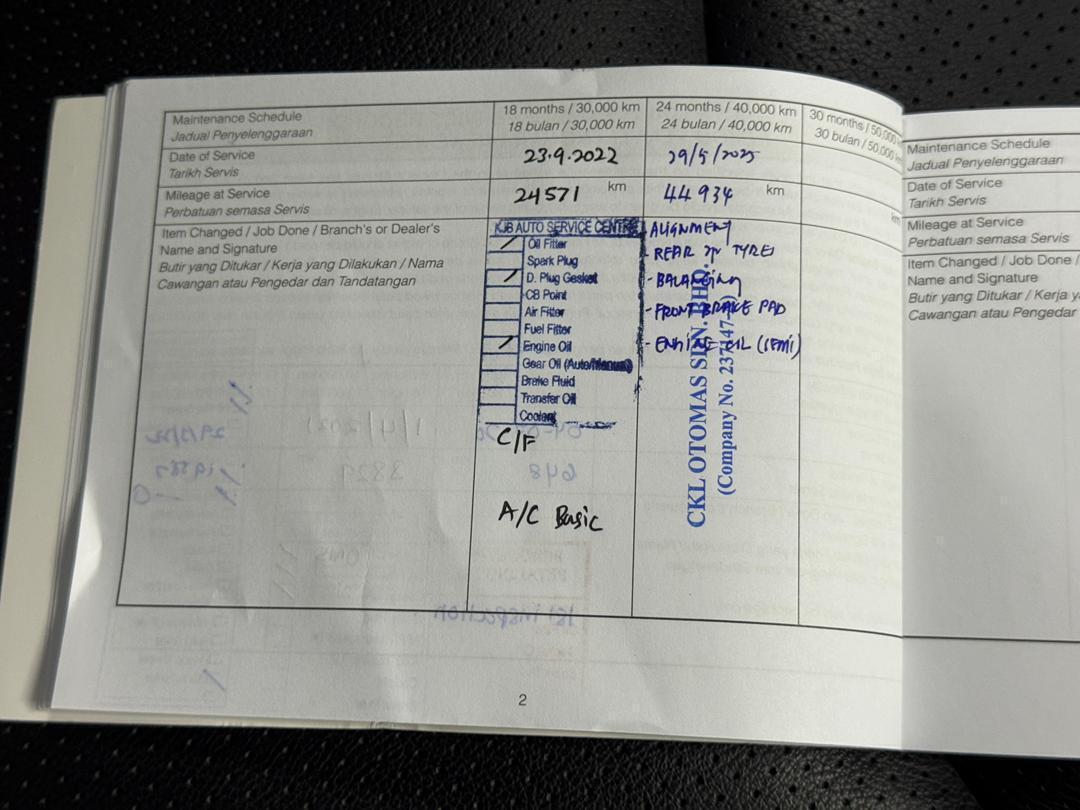 Maintenance Schedule
Jadual Penyelenggaraan
18 months / 30,000 km
18 bulan / 30,000 km
24 months / 40,000 km
24 bulan / 40,000 km
30 months / 50,000
30 bulan / 50,000 km
Date of Service
Tarikh Servis
23.9.2022
29/5/2025
Mileage at Service
Perbatuan semasa Servis
24571 km
44934 km
km
Item Changed / Job Done / Branch's or Dealer's
Name and Signature
Butir yang Ditukar / Kerja yang Dilakukan / Nama
Cawangan atau Pengedar dan Tandatangan
KJB AUTO SERVICE CENTRE
Oil Filter
Spark Plug
D. Plug Gasket
CB Point
Air Filter
Fuel Filter
Engine Oil
Gear Oil (Auto/Manual)
Brake Fluid
Transfer Oil
Coolant
C/F
A/C Basic
ALIGNMENT
REAR TYRES
- BALANCING
- FRONT BRAKE PAD
- ENGINE OIL (SEMI)
CKL OTOMAS SDN. BHD.
(Company No. 237447-
2
Maintenance Schedule
Jadual Penyelenggaraan
Date of Service
Tarikh Servis
Mileage at Service
Perbatuan semasa Servis
Item Changed / Job Done /
Name and Signature
Butir yang Ditukar / Kerja y
Cawangan atau Pengedar